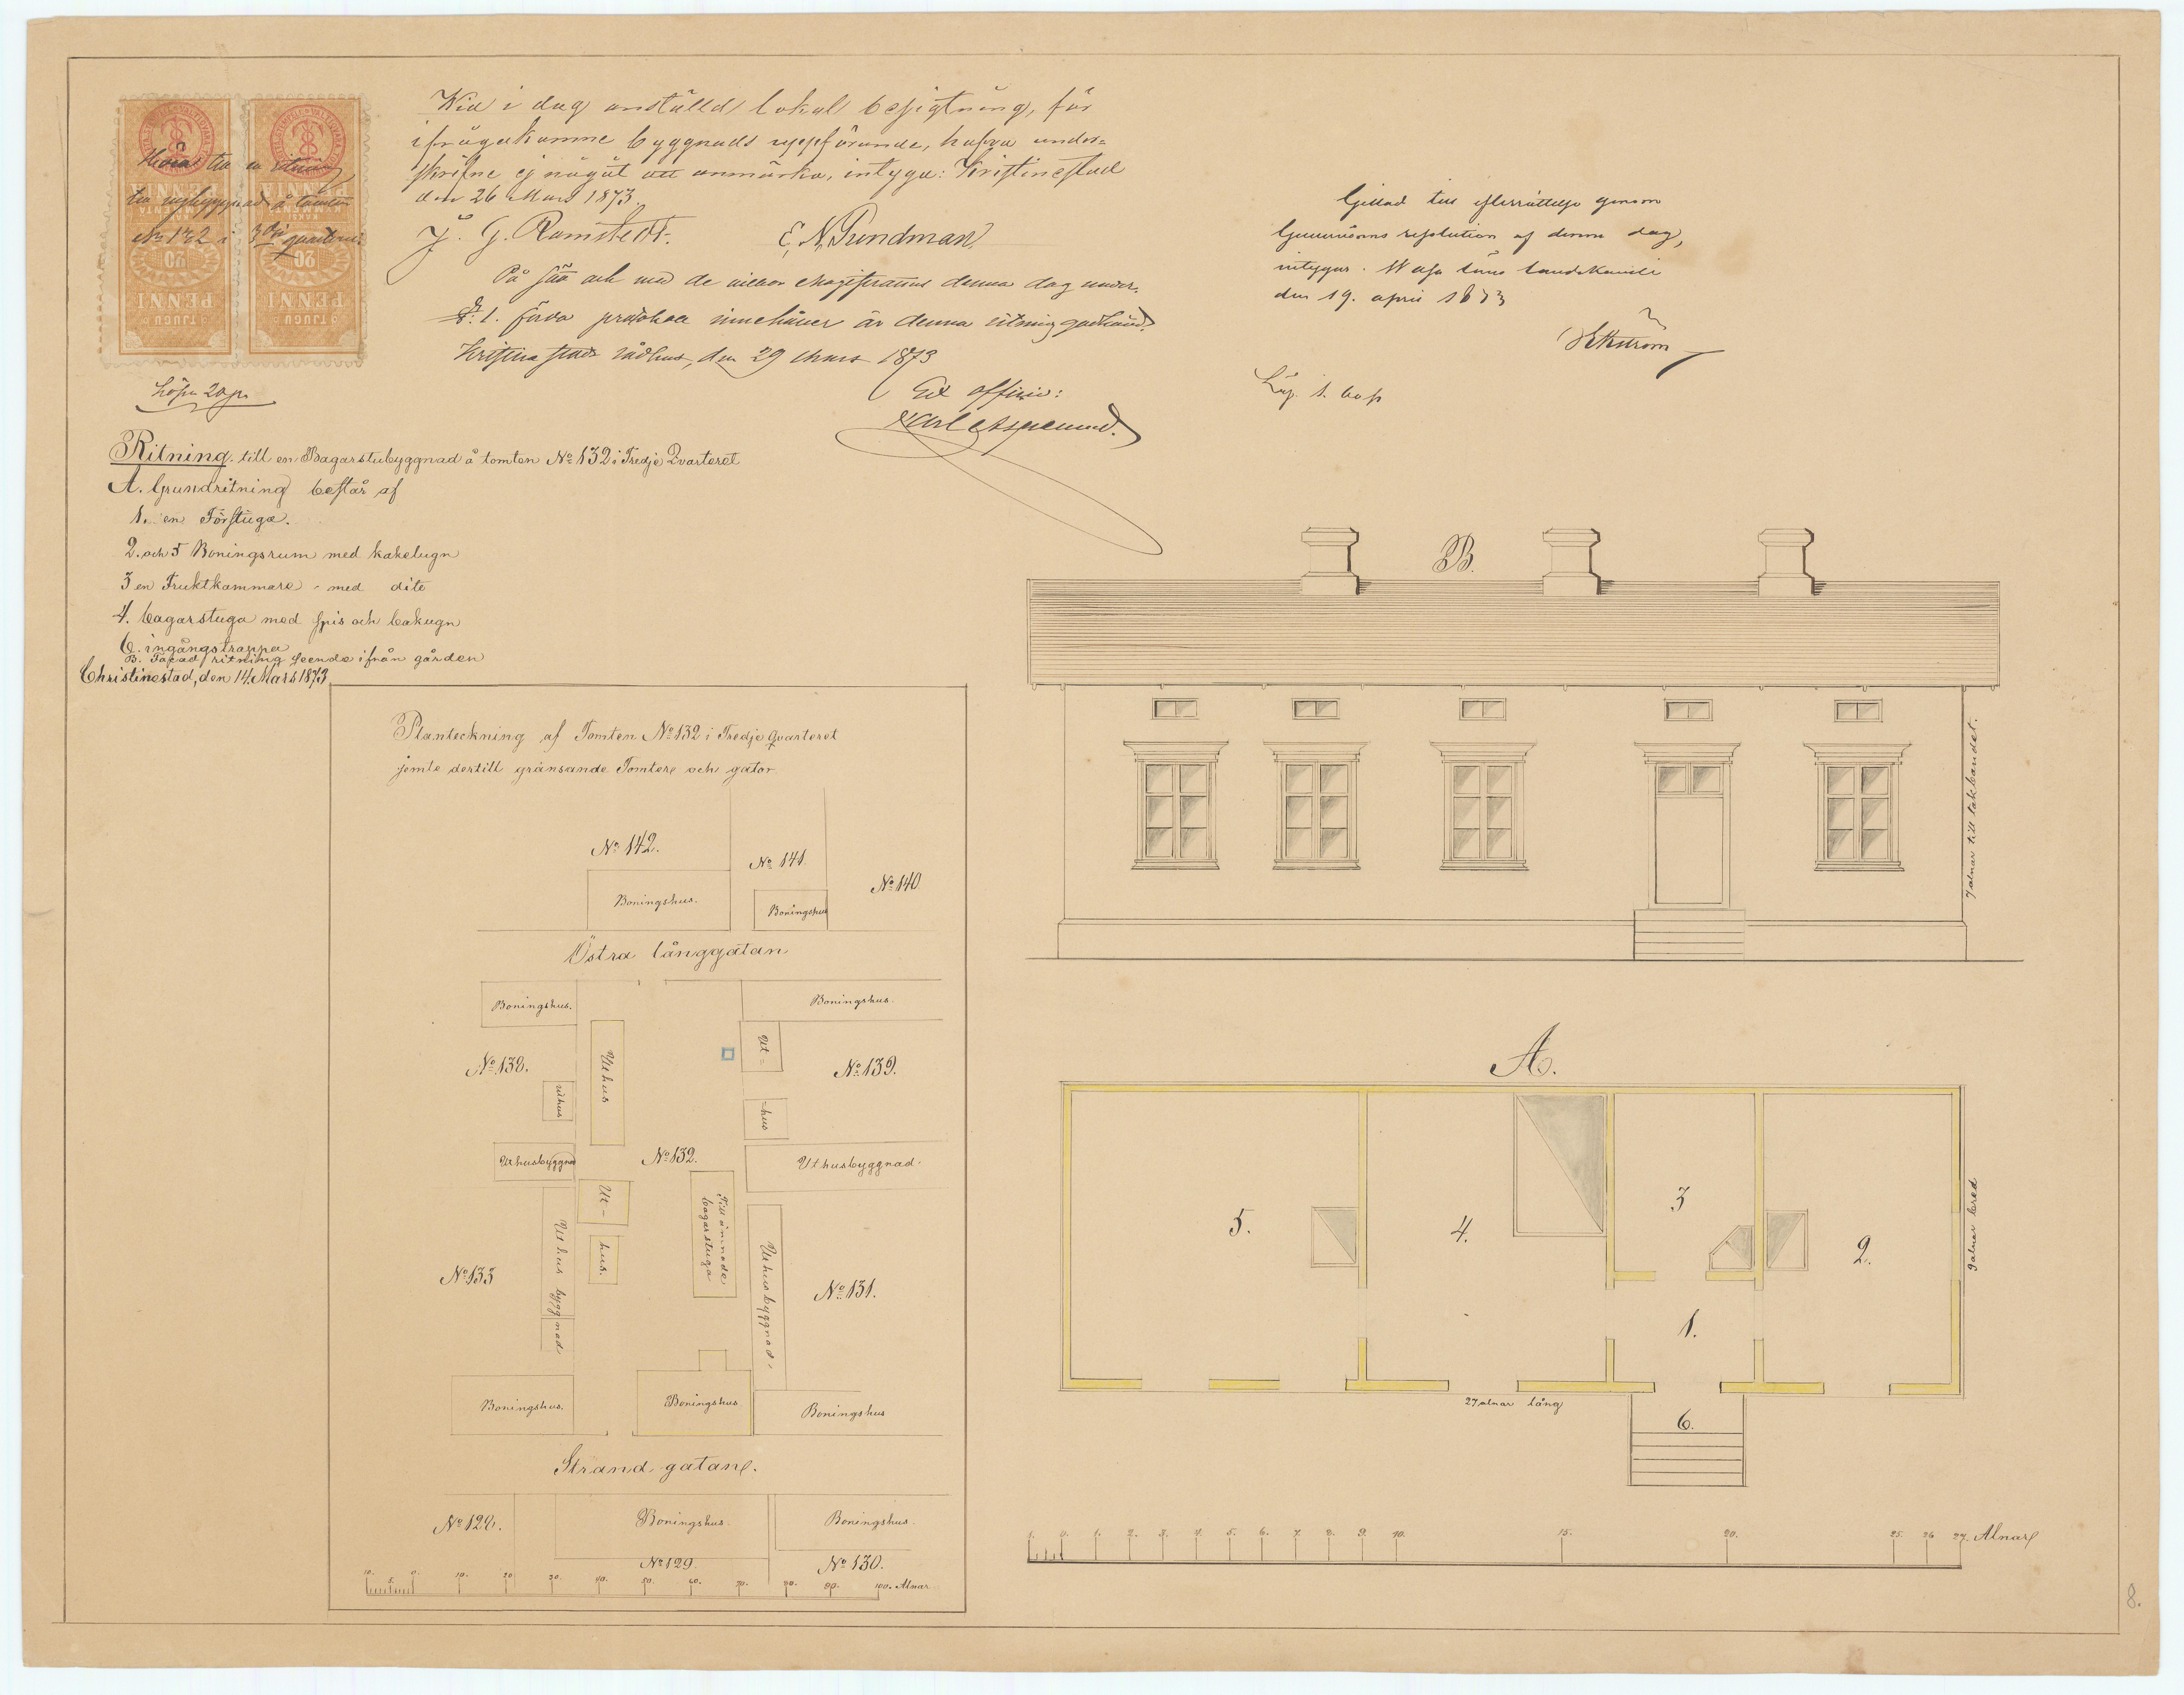 Wid i dag anställd lokal besigtning, för
ifrågakomne byggnads uppförande, hafva under-
skrifne ej något att anmärka, intyga: Kristinestad
den 26 Mars 1873.
J. G. Ramstedt. E. N. Sundman
På sätt och med de vilkor Magistratens denna dag under
§: 1. förda protokoll innehåller är denna ritning godkänd.
Kristinestads rådhus, den 29 Mars 1873
Ex officio:
Gillad till efterrättelse genom
Guvernörens resolution af denna dag,
intygar. Wasa läns landskansli
den 19. april 1873
Ekström
till nybyggnad å tomten
No 132 i 3dje quarteret
PENNIÄ
KAKSI KYMMENTÄ
20
PENNI
TJUGU
PENNIÄ
KAKSI KYMMENTÄ
20
PENNI
TJUGU
Lösn 20 pi
Ritning till en Bagarstubyggnad å tomten No 132 i Tredje Qvarteret
A. Grundritning består af
1. en Förstuga.
2. och 5 Boningsrum med kakelugn
3 en Fruktkammare - med dito
4. bagarstuga med spis och bakugn
6. ingångstrappa
B. Facad ritning seende ifrån gården
Christinestad, den 14 Mars 1873
Planteckning af Tomten No 132 i Tredje Qvarteret
jemte dertill gränsande Tomter och gator
No 142.
No 141
No 140
Boningshus.
Boningshus
Östra långgatan
Boningshus.
Boningshus.
Uthus
Ut=
No 138.
No 139.
uthus
-hus
Uthusbyggnad
No 132.
Uthusbyggnad.
Ut-
hus.
Till ämnade
bagarstuga
Uthus byggnad
Uthusbyggnad.
No 133
No 131.
Boningshus.
Boningshus
Boningshus
Strand gatan.
No 128.
Boningshus.
Boningshus.
No 129.
No 130.
10. 5. 0. 10. 20 30. 40. 50. 60. 70. 80. 90. 100. Alnar
B.
7 alnar till takbandet.
A.
5.
4.
3
2.
1.
6.
9 alnar bred
27 alnar lång
1. 0. 1. 2. 3. 4. 5. 6. 7. 8. 9. 10. 15. 20. 25. 26 27. Alnar
8.